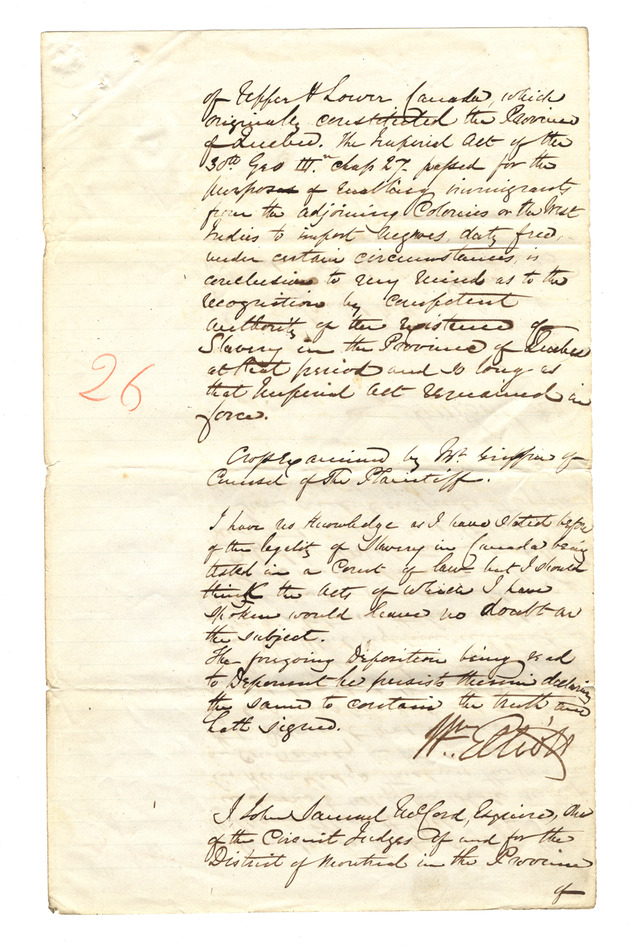 of Upper & Lower Canada, which
originally constituted the Province
of Quebec. The Imperial Act of the
30th Geo III. chap 27. passed for the
purpose of enabling immigrants
from the adjoining Colonies or the West
Indies to import Negroes, duty free,
under certain circumstances, is
conclusive to my mind as to the
recognition by competent
authority of the existence of
Slavery in the Province of Quebec
at that period and so long as
that Imperial Act remained in
force.
Cross examined by Mr. Griffin of
Counsel of the Plaintiff.
26
I have no knowledge as I have stated before
of the legality of Slavery in Canada being
tested in a Court of law but I should
think the Acts of which I have
spoken would leave no doubt on
the subject.
The foregoing Deposition being read
to Deponent he persists therein declaring
the same to contain the truth and
hath signed.
Wm. Elliott
I John Samuel McCord, Esquire, One
of the Circuit Judges of and for the
District of Montreal in the Province
of